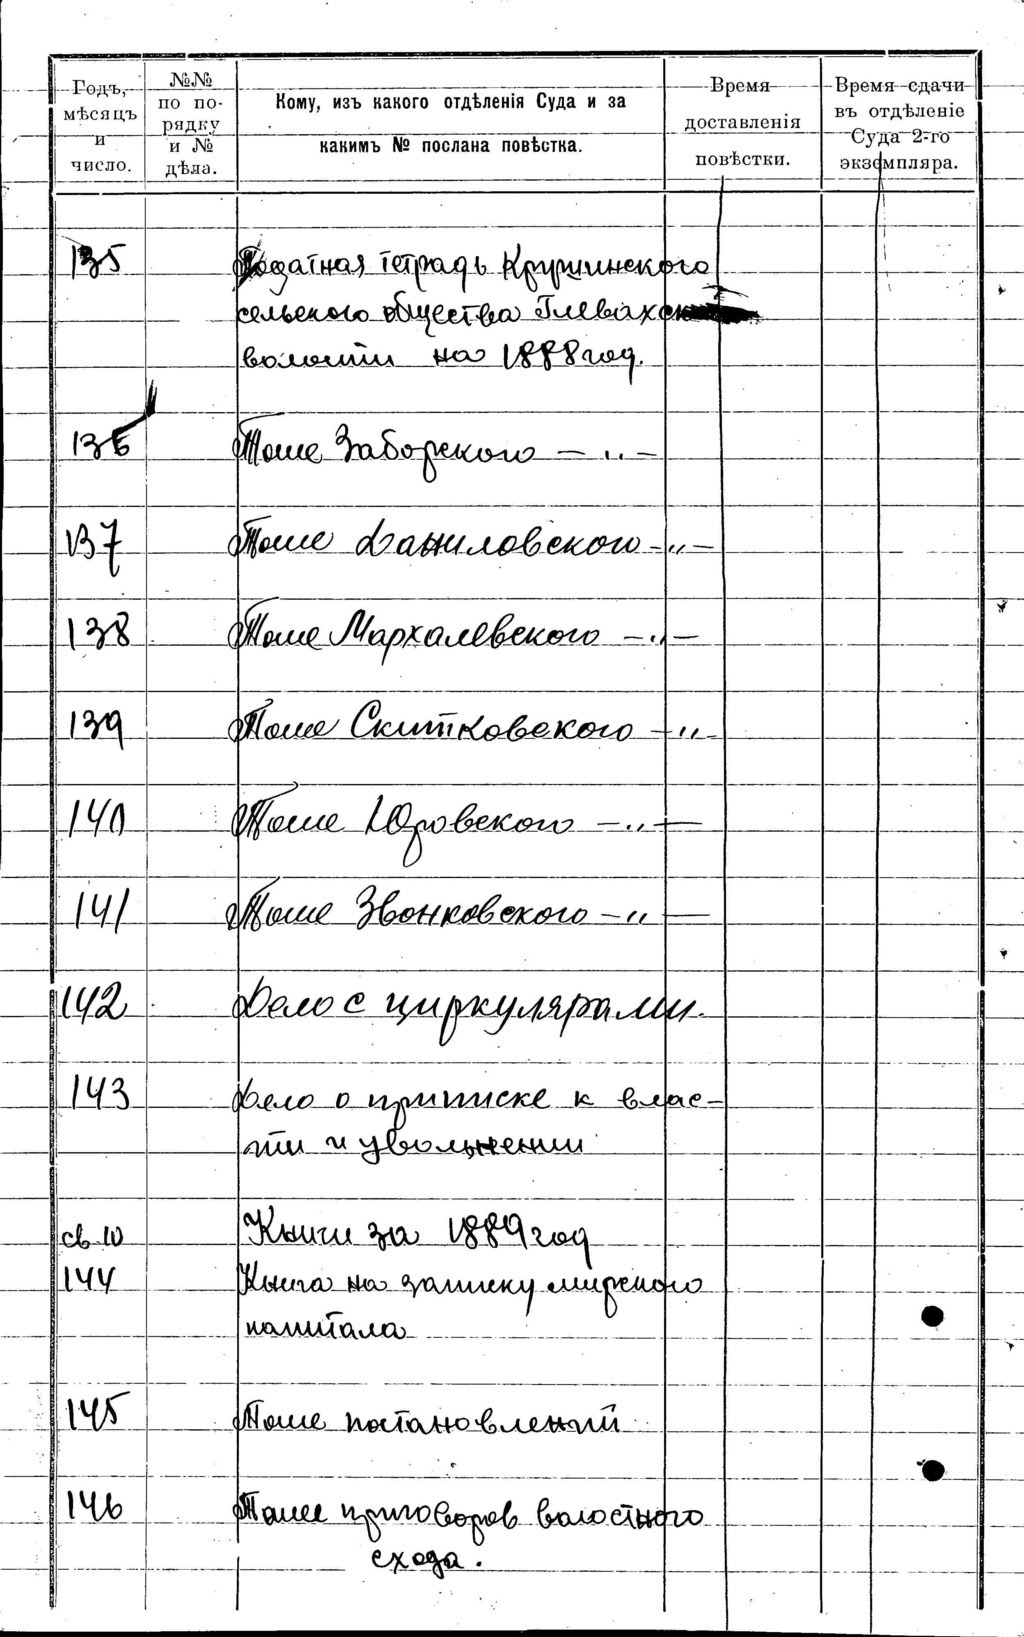 Годъ, мѣсяцъ и число.
№№ по по-рядку и № дѣла.
Кому, изъ какого отдѣленія Суда и за
какимъ № послана повѣстка.
Время доставленія повѣстки.
Время сдачи въ отдѣленіе Суда 2-го экземпляра.
135 Податная тетрадь Крушинского
сельского общества Глевахск
волости на 1888 год.
136 Тоже Заборского — „ —
137 Тоже Даниловского — „ —
138 Тоже Мархалевского — „ —
139 Тоже Скитковского — „ —
140 Тоже Юровского — „ —
141 Тоже Звонковского — „ —
142 Дело с циркулярами.
143 Дело о приписке к влас-
ти и увольнении
св 10 Книги за 1889 год
144 Книга на записку мирского
капитала
145 Тоже постановлений
146 Тоже приговоров волостного
схода.